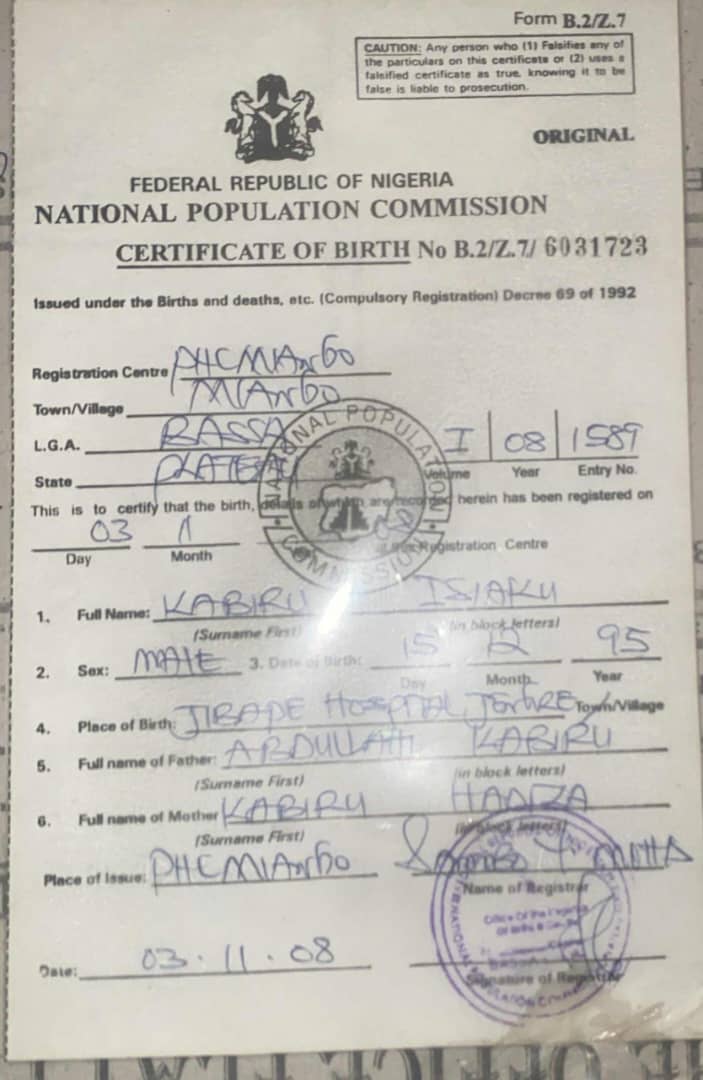 Form B.2/Z.7
CAUTION: Any person who (1) Falsifies any of
the particulars on this certificate or (2) uses a
falsified certificate as true, knowing it to be
false is liable to prosecution.
ORIGINAL
FEDERAL REPUBLIC OF NIGERIA
NATIONAL POPULATION COMMISSION
CERTIFICATE OF BIRTH No B.2/Z.7/ 6031723
Issued under the Births and deaths, etc. (Compulsory Registration) Decree 69 of 1992
Registration Centre PHC MIANGO
Town/Village MIANGO
L.G.A. BASSA I 08 1589
State PLATEAU Volume Year Entry No.
This is to certify that the birth, details of which are recorded herein has been registered on
03 11 08
Day Month at this Registration Centre
1. Full Name: KABIRU ISIAKU
(Surname First) (in block letters)
2. Sex: MALE 3. Date of Birth: 15 12 95
Day Month Year
4. Place of Birth: HOSPITAL, Town/Village
5. Full name of Father: ABDULLAHI KABIRU
(Surname First) (in block letters)
6. Full name of Mother KABIRU
(Surname First) (in block letters)
Place of Issue: PHC MIANGO
Name of Registrar
Date: 03.11.08
Signature of Registrar
NATIONAL POPULATION COMMISSION